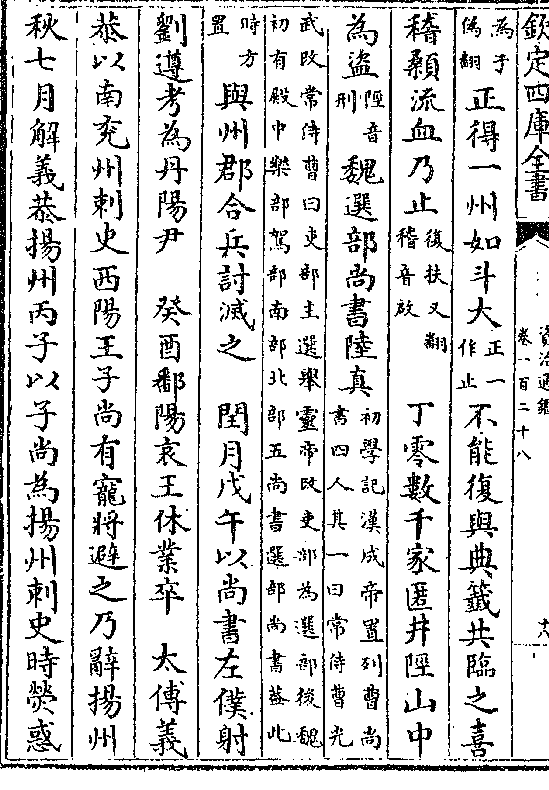 欽定四庫全書
資治通鑑
卷一百二十八
為子
偽翻
正得一州如斗大
正一
作止
不能復與典籖共臨之喜
稽顙流血乃止
復扶又翻
稽音啟
丁零數千家匿井陘山中
為盗
陘音
刑
魏選部尚書陸真
初學記漢成帝置列曹尚
書四人其一曰常侍曹光
武改常侍曹曰吏部主選舉靈帝改吏部為選部後魏
初有殿中樂部駕部南部北部五尚書選部尚書葢此
時方
置
與州郡合兵討滅之　閏月戊午以尚書左僕射
劉遵考為丹陽尹　癸酉鄱陽哀王休業卒　太傅義
恭以南兖州刺史西陽王子尚有寵將避之乃辭揚州
秋七月解義恭揚州丙子以子尚為揚州刺史時熒惑